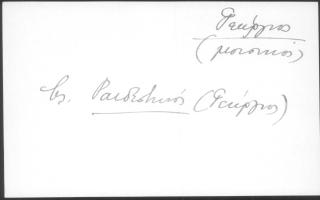 Γεώργιος
(μουσικός)
βλ. Ραιδεστινός (Γεώργιος)